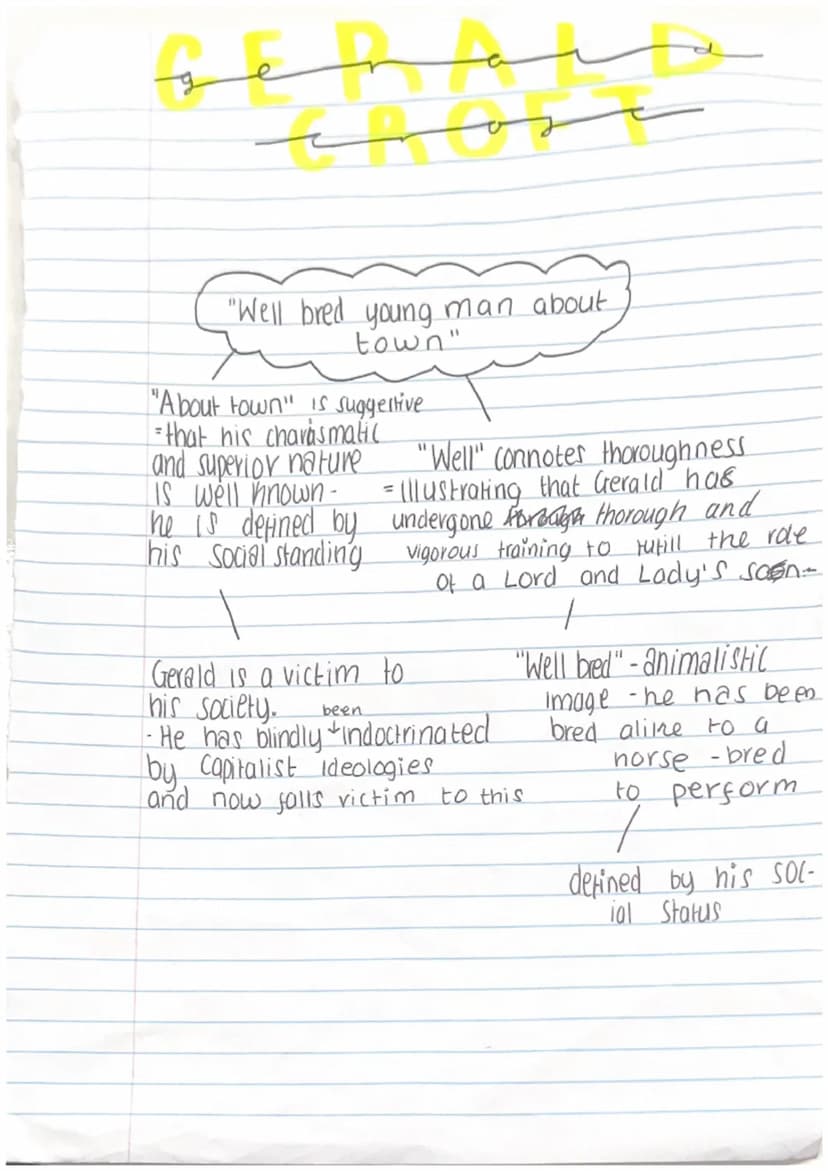 GERALD
gerald
CROFT
croft
"Well bred young man about
town"
"About town" is suggestive
=that his charasmatic
and superior nature
is well known-
he is defined by
his social standing
"Well" connotes thoroughness
=Illustrating that Gerald has
undergone thorough and
vigorous training to fulfill the role
of a Lord and Lady's son-
Gerald is a victim to
his society.
been
- He has blindly indoctrinated
by capitalist ideologies
and now falls victim to this
"Well bred" - animalistic
image - he has been
bred alike to a
horse - bred
to perform
defined by his soc-
ial status